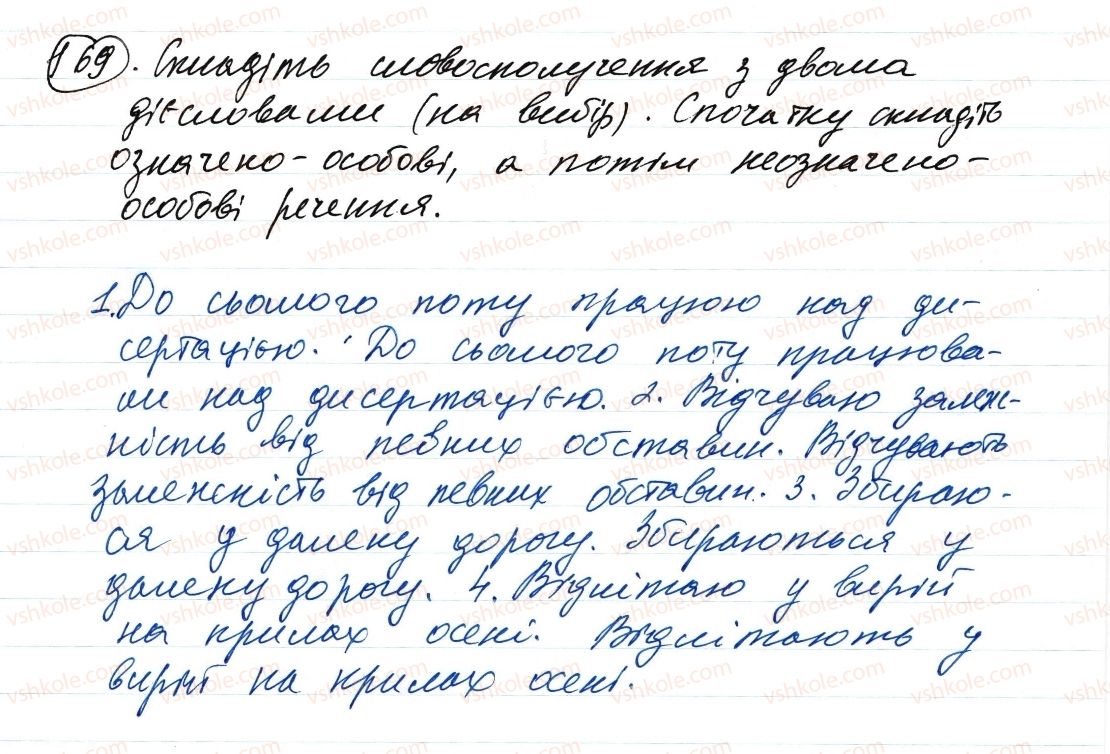 169. Складіть словосполучення з двома
дієсловами (на вибір). Спочатку складіть
означено-особові, а потім неозначено-
особові речення.
1. До сьомого поту працюю над ди-
сертацією. До сьомого поту працюва-
ли над дисертацією. 2. Відчуваю залеж-
ність від певних обставин. Відчувають
залежність від певних обставин. 3. Збираю-
ся у далеку дорогу. Збираються у
далеку дорогу. 4. Відлітаю у вирій
на крилах осені. Відлітають у
вирій на крилах осені.